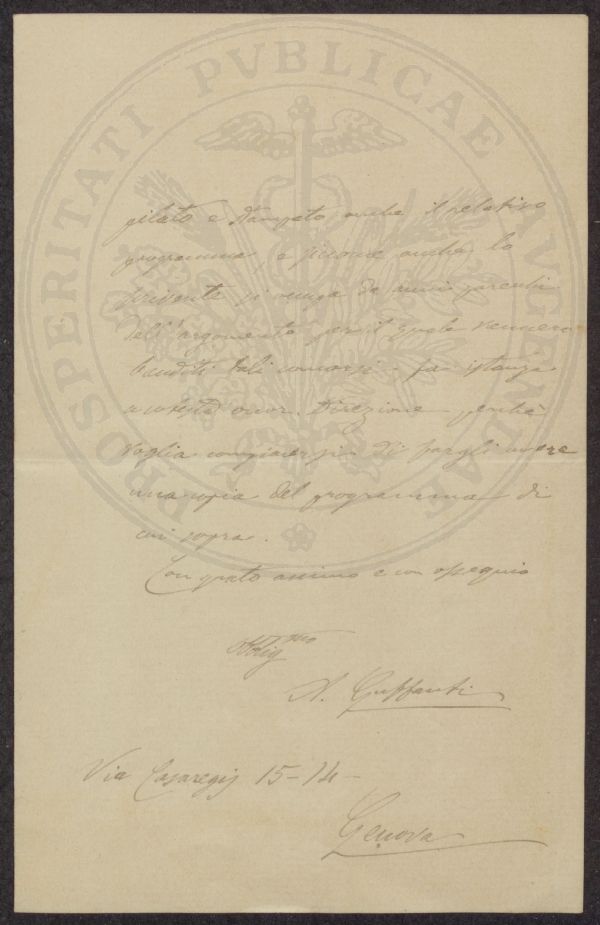 PROSPERITATI PVBLICAE AVGENDAE
pilato e stampato anche il relativo
programma, e siccome anche lo
scrivente si occupa da anni parecchi
dell'argomento per il quale vennero
banditi tali concorsi - fa istanza
a codesta onor. Direzione perchè
voglia compiacersi di fargli avere
una copia del programma di
cui sopra.
Con grato animo e con ossequio
Obblig.mo
A. Guffanti
Via Casaregis 15-14-
Genova